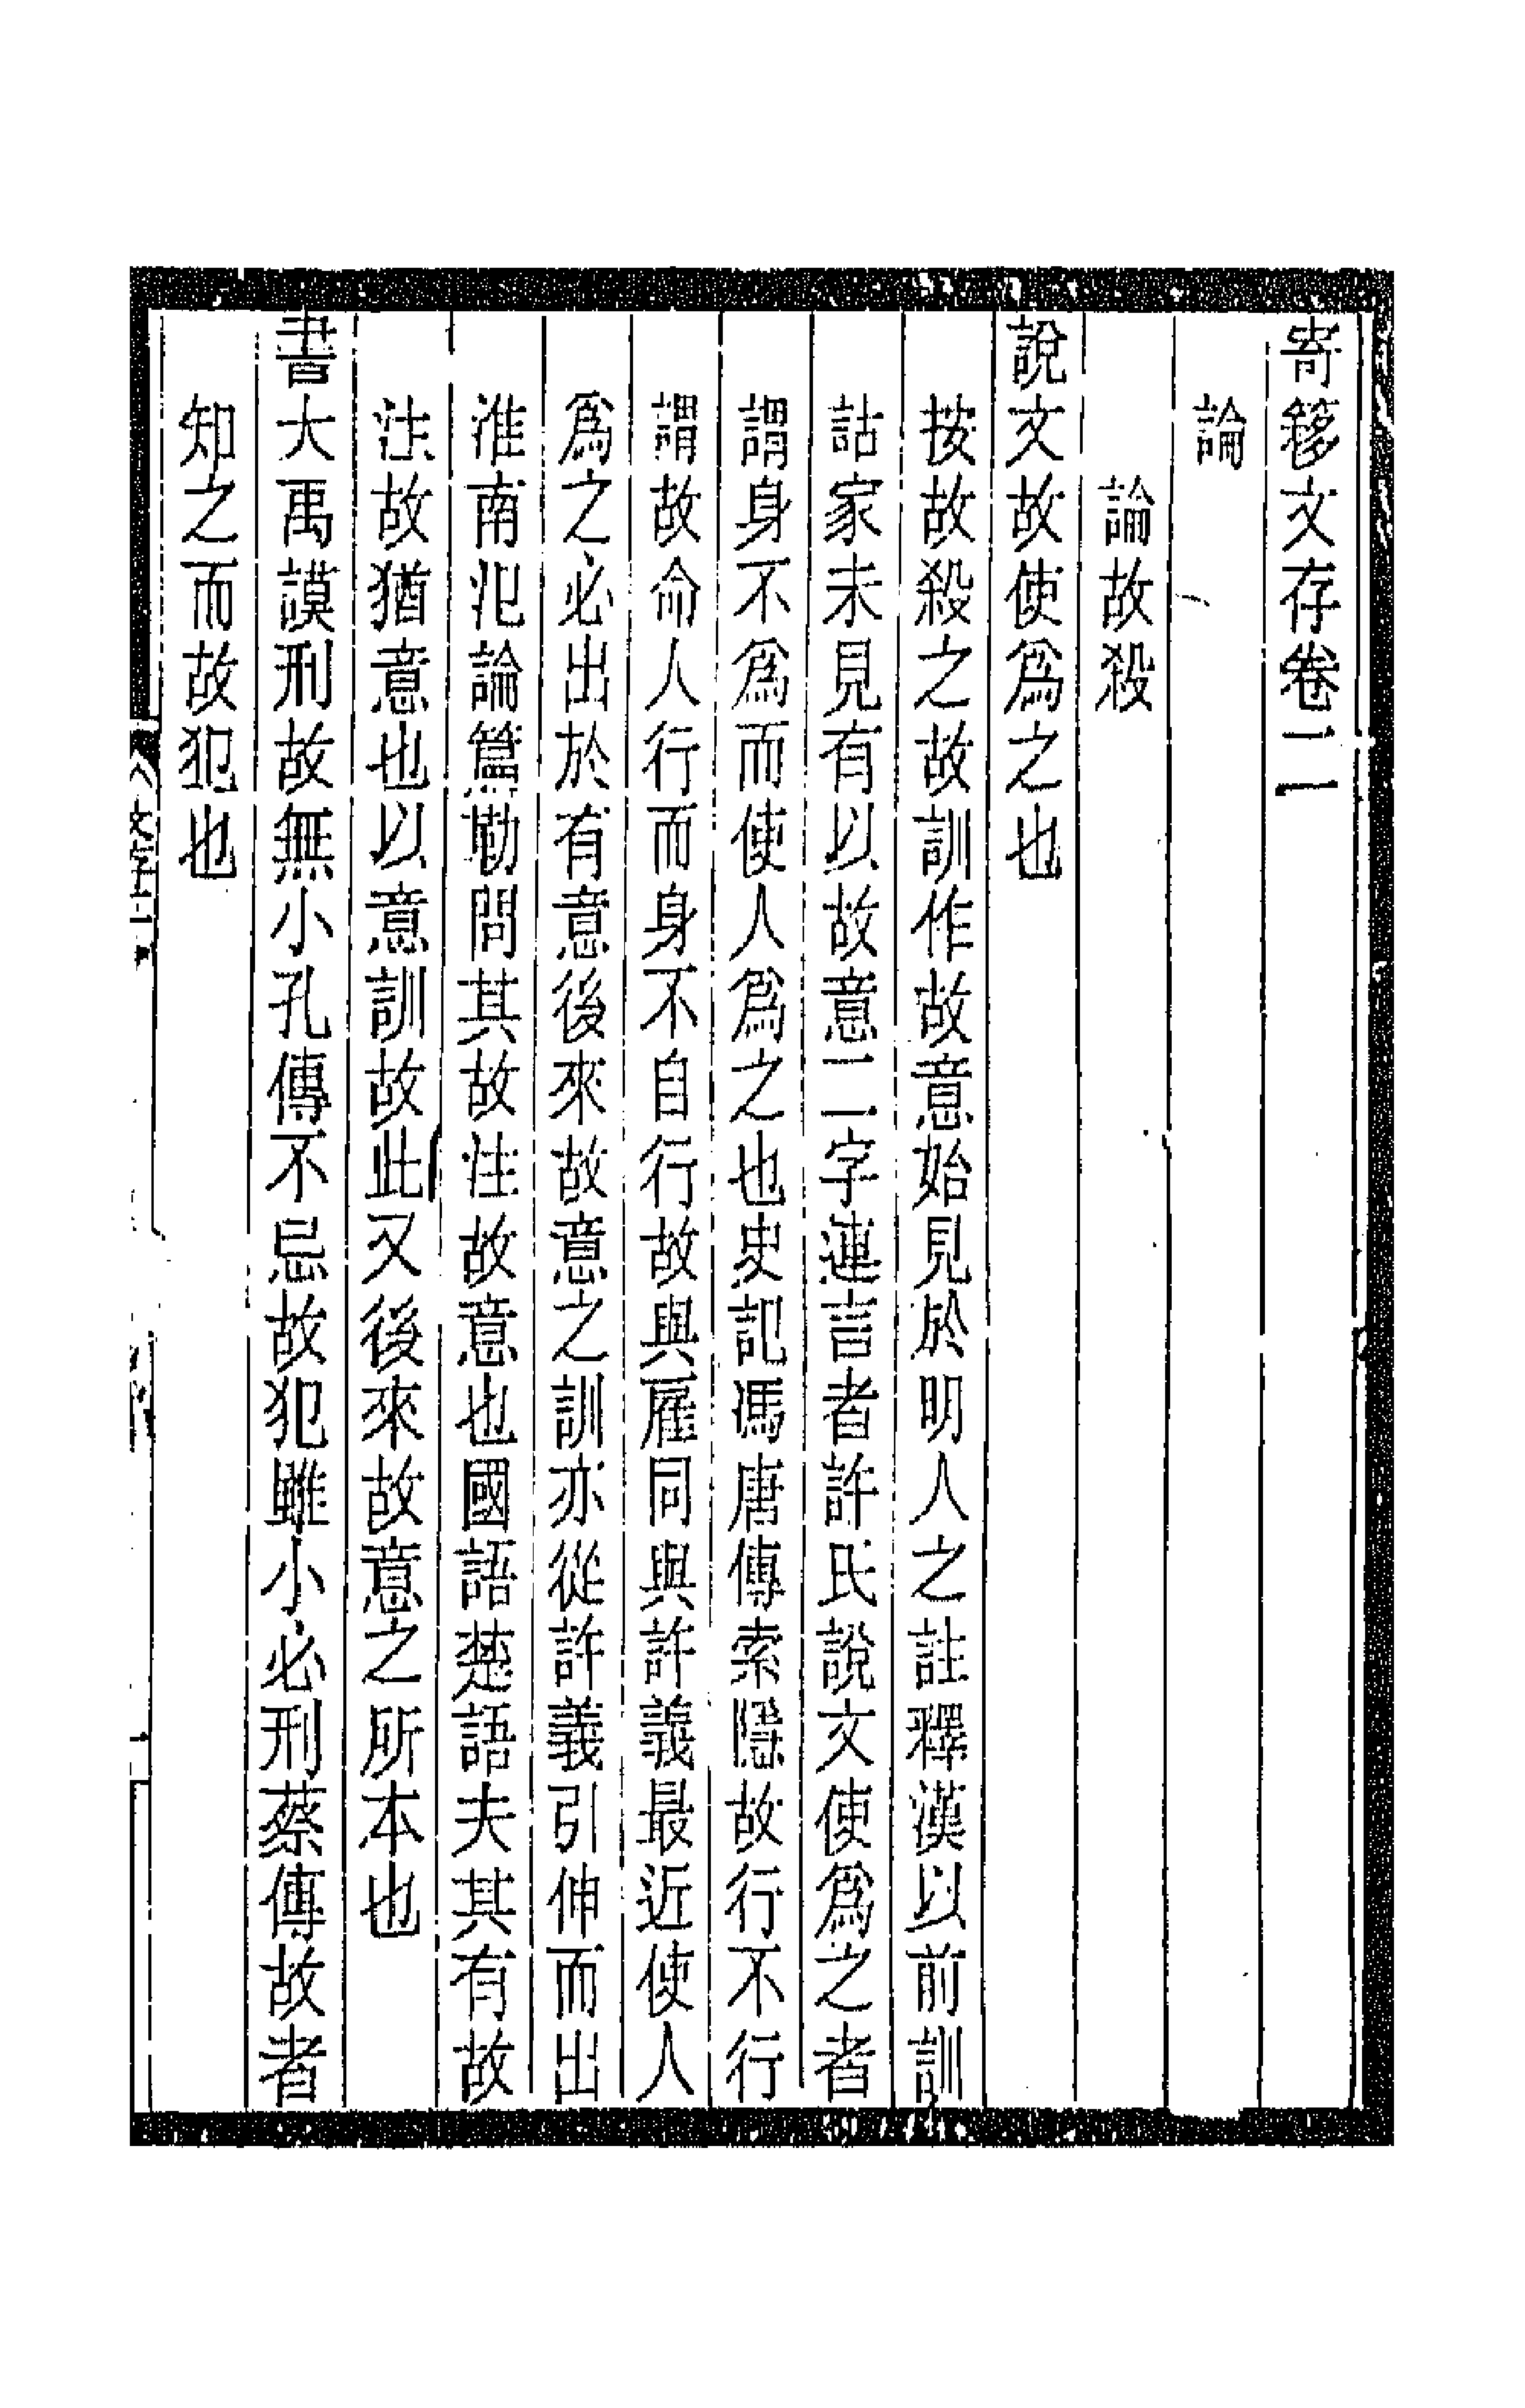 寄簃文存卷二
論
論故殺
說文故使爲之也
按故殺之故訓作故意始見於明人之註釋漢以前訓
詁家未見有以故意二字連言者許氏說文使爲之者
謂身不爲而使人爲之也史記馮唐傳索隱故行不行
謂故命人行而身不自行故與雇同與許義最近使人
爲之必出於有意後來故意之訓亦從許義引伸而出
淮南氾論篇勒問其故注故意也國語楚語夫其有故
注故猶意也以意訓故此又後來故意之所本也
書大禹謨刑故無小孔傳不忌故犯雖小必刑蔡傳故者
知之而故犯也